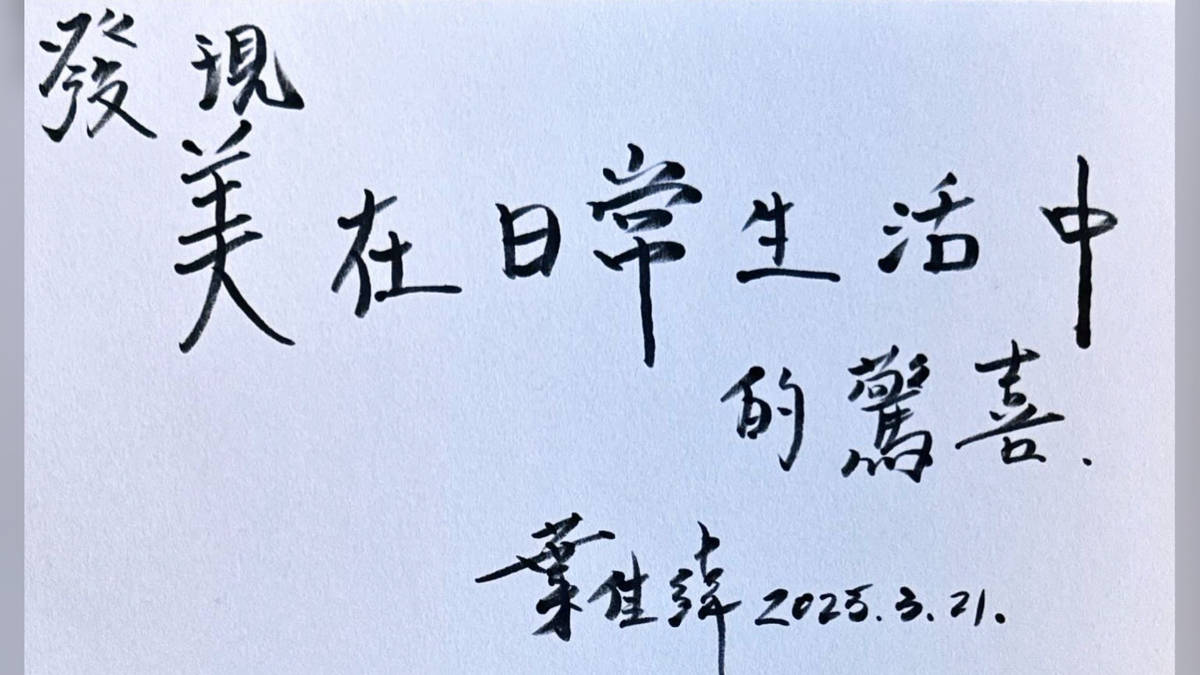 發現
美在日常生活中
的驚喜.
葉佳緯 2025.3.21.